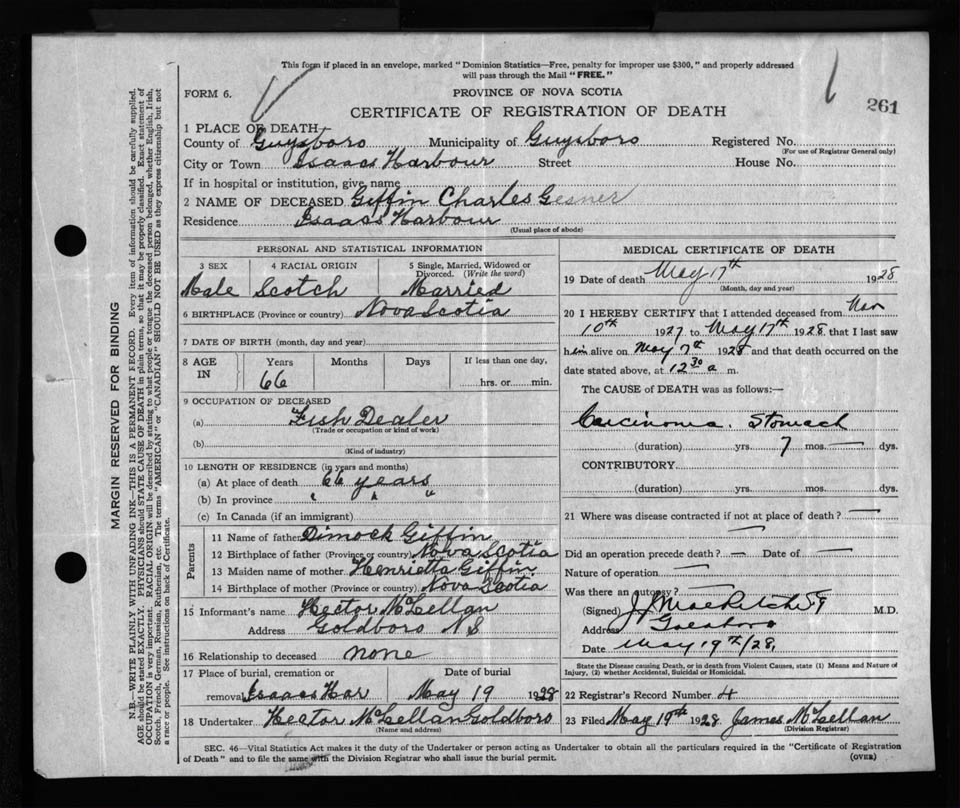 This form if placed in an envelope, marked "Dominion Statistics—Free, penalty for improper use $300," and properly addressed
will pass through the Mail "FREE."
FORM 6.
PROVINCE OF NOVA SCOTIA
261
CERTIFICATE OF REGISTRATION OF DEATH
1 PLACE OF DEATH
County of Guysboro Municipality of Guysboro Registered No.
(For use of Registrar General only)
City or Town Isaacs Harbour Street House No.
If in hospital or institution, give name
2 NAME OF DECEASED Giffin Charles Gesner
Residence Isaacs Harbour
(Usual place of abode)
PERSONAL AND STATISTICAL INFORMATION
3 SEX 4 RACIAL ORIGIN 5 Single, Married, Widowed or
Divorced. (Write the word)
Male Scotch Married
6 BIRTHPLACE (Province or country) Nova Scotia
7 DATE OF BIRTH (month, day and year)
8 AGE Years Months Days If less than one day,
IN 66 hrs. or min.
9 OCCUPATION OF DECEASED
(a) Fish Dealer
(Trade or occupation or kind of work)
(b)
(Kind of industry)
10 LENGTH OF RESIDENCE (in years and months)
(a) At place of death 66 years
(b) In province " " "
(c) In Canada (if an immigrant)
Parents
11 Name of father Dimock Giffin
12 Birthplace of father (Province or country) Nova Scotia
13 Maiden name of mother Henrietta Giffin
14 Birthplace of mother (Province or country) Nova Scotia
15 Informant's name Hector McLellan
Address Goldboro N S
16 Relationship to deceased none
17 Place of burial, cremation or Date of burial
removal Isaacs Har May 19 1928
18 Undertaker Hector McLellan Goldboro
(Name and address)
MEDICAL CERTIFICATE OF DEATH
19 Date of death May 17th 1928
(Month, day and year)
20 I HEREBY CERTIFY that I attended deceased from Nov
10th 1927 to May 17th 1928 that I last saw
him alive on May 7th 1928 and that death occurred on the
date stated above, at 12 30 a m.
The CAUSE of DEATH was as follows:—
Carcinoma. Stomach
(duration) yrs. 7 mos. — dys.
CONTRIBUTORY
(duration) yrs. mos. dys.
21 Where was disease contracted if not at place of death? —
—
Did an operation precede death? — Date of —
Nature of operation —
Was there an autopsy? —
(Signed) M.D.
Address Goldboro
Date May 19th/28.
State the Disease causing Death, or in death from Violent Causes, state (1) Means and Nature of
Injury, (2) whether Accidental, Suicidal or Homicidal.
22 Registrar's Record Number 4
23 Filed May 19th 1928. James McLellan
(Division Registrar)
SEC. 46—Vital Statistics Act makes it the duty of the Undertaker or person acting as Undertaker to obtain all the particulars required in the "Certificate of Registration
of Death" and to file the same with the Division Registrar who shall issue the burial permit.
(OVER)
MARGIN RESERVED FOR BINDING
N.B.—WRITE PLAINLY WITH UNFADING INK—THIS IS A PERMANENT RECORD. Every item of information should be carefully supplied.
AGE should be stated EXACTLY. PHYSICIANS should STATE CAUSE OF DEATH in plain terms, so that it may be properly classified. Exact statement of
OCCUPATION is very important. RACIAL ORIGIN will be described by stating to what people or tongue the deceased person belonged, whether English, Irish,
Scotch, French, German, Russian, Ruthenian, etc. The terms "AMERICAN" or "CANADIAN" SHOULD NOT BE USED as they express citizenship but not
a race or people. See instructions on back of Certificate.